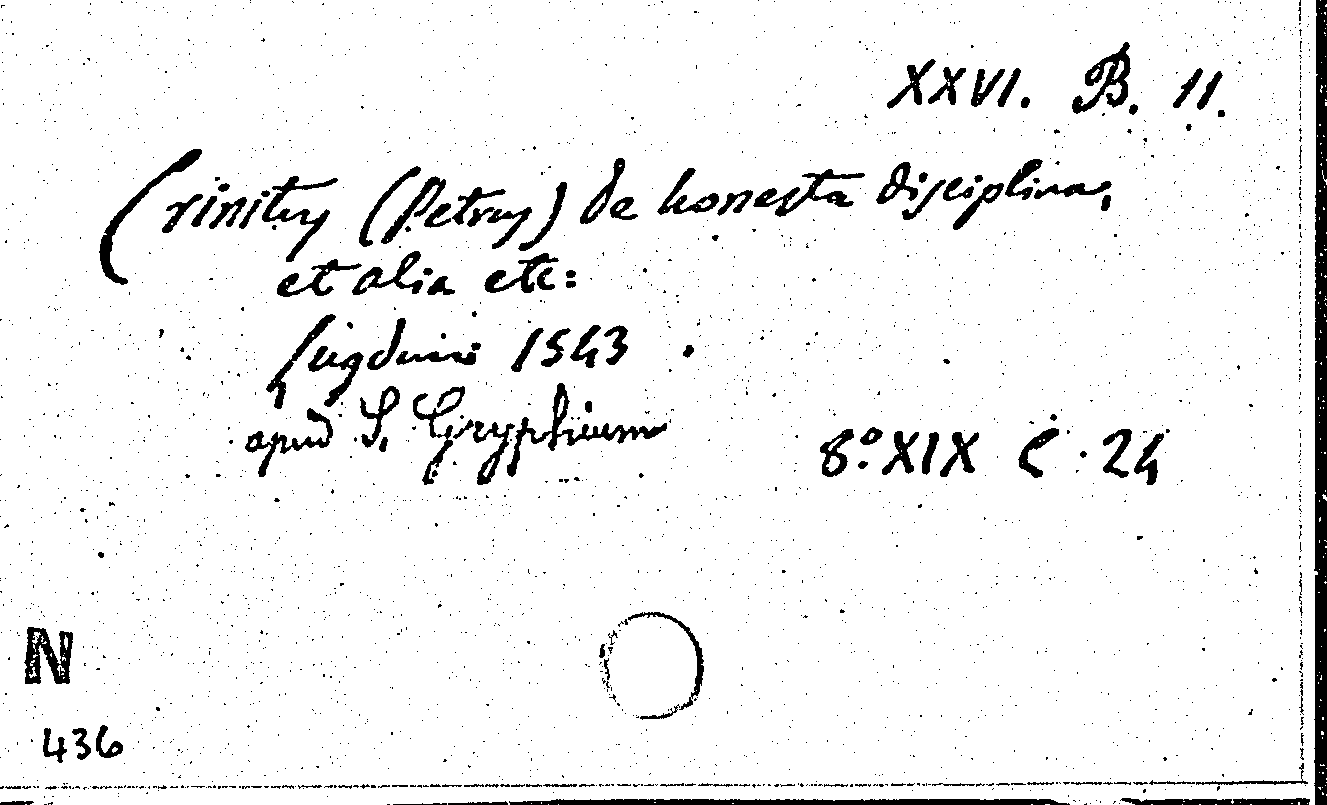 XXVI. B. 11.
Crinitus (Petrus) de honesta disciplina,
et alia etc:
Lugduni 1543.
apud S. Gryphium
8.º XIX C. 24
N
436